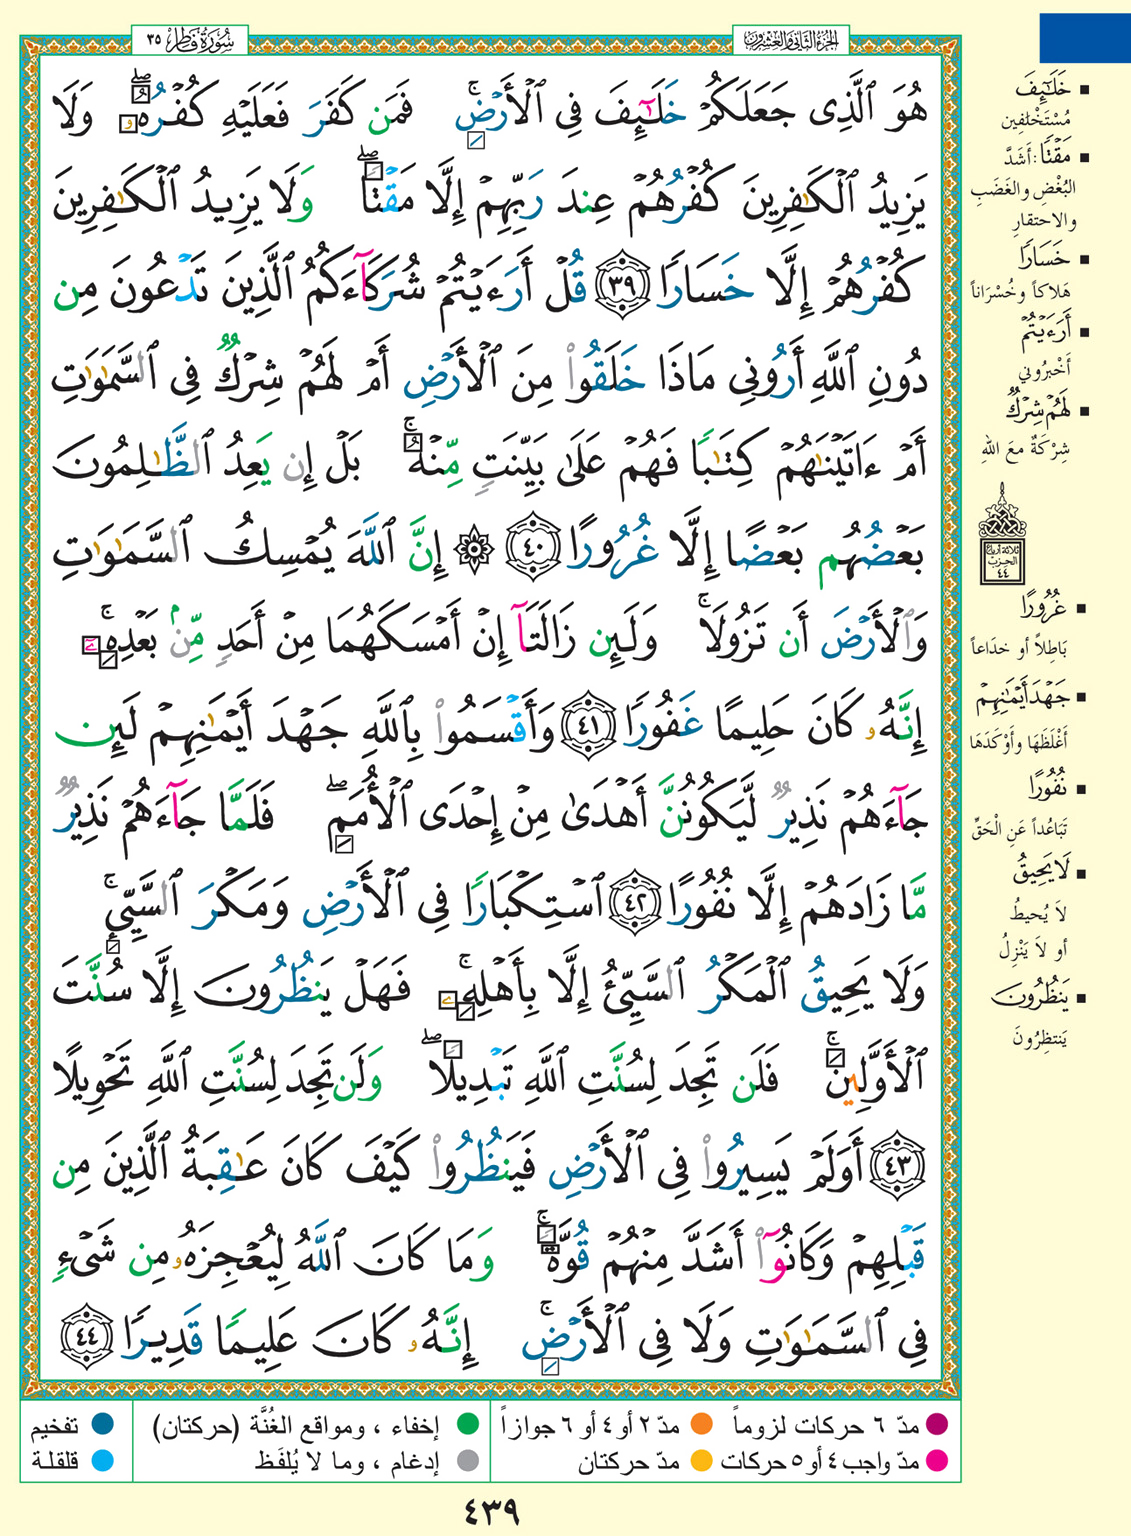 سُورَةُ فَاطِر ٣٥
الجزء الثاني والعشرون
هُوَ ٱلَّذِى جَعَلَكُمْ خَلَـٰٓئِفَ فِى ٱلْأَرْضِ ۚ فَمَن كَفَرَ فَعَلَيْهِ كُفْرُهُۥ ۖ وَلَا
يَزِيدُ ٱلْكَـٰفِرِينَ كُفْرُهُمْ عِندَ رَبِّهِمْ إِلَّا مَقْتًا ۖ وَلَا يَزِيدُ ٱلْكَـٰفِرِينَ
كُفْرُهُمْ إِلَّا خَسَارًا ٣٩ قُلْ أَرَءَيْتُمْ شُرَكَآءَكُمُ ٱلَّذِينَ تَدْعُونَ مِن
دُونِ ٱللَّهِ أَرُونِى مَاذَا خَلَقُوا۟ مِنَ ٱلْأَرْضِ أَمْ لَهُمْ شِرْكٌ فِى ٱلسَّمَـٰوَٰتِ
أَمْ ءَاتَيْنَـٰهُمْ كِتَـٰبًا فَهُمْ عَلَىٰ بَيِّنَتٍ مِّنْهُ ۚ بَلْ إِن يَعِدُ ٱلظَّـٰلِمُونَ
بَعْضُهُم بَعْضًا إِلَّا غُرُورًا ٤٠ ۞ إِنَّ ٱللَّهَ يُمْسِكُ ٱلسَّمَـٰوَٰتِ
وَٱلْأَرْضَ أَن تَزُولَا ۚ وَلَئِن زَالَتَآ إِنْ أَمْسَكَهُمَا مِنْ أَحَدٍ مِّنۢ بَعْدِهِۦٓ ۚ
إِنَّهُۥ كَانَ حَلِيمًا غَفُورًا ٤١ وَأَقْسَمُوا۟ بِٱللَّهِ جَهْدَ أَيْمَـٰنِهِمْ لَئِن
جَآءَهُمْ نَذِيرٌ لَّيَكُونُنَّ أَهْدَىٰ مِنْ إِحْدَى ٱلْأُمَمِ ۖ فَلَمَّا جَآءَهُمْ نَذِيرٌ
مَّا زَادَهُمْ إِلَّا نُفُورًا ٤٢ ٱسْتِكْبَارًا فِى ٱلْأَرْضِ وَمَكْرَ ٱلسَّيِّئِ ۚ
وَلَا يَحِيقُ ٱلْمَكْرُ ٱلسَّيِّئُ إِلَّا بِأَهْلِهِۦ ۚ فَهَلْ يَنظُرُونَ إِلَّا سُنَّتَ
ٱلْأَوَّلِينَ ۚ فَلَن تَجِدَ لِسُنَّتِ ٱللَّهِ تَبْدِيلًا ۖ وَلَن تَجِدَ لِسُنَّتِ ٱللَّهِ تَحْوِيلًا
٤٣ أَوَلَمْ يَسِيرُوا۟ فِى ٱلْأَرْضِ فَيَنظُرُوا۟ كَيْفَ كَانَ عَـٰقِبَةُ ٱلَّذِينَ مِن
قَبْلِهِمْ وَكَانُوٓا۟ أَشَدَّ مِنْهُمْ قُوَّةً ۚ وَمَا كَانَ ٱللَّهُ لِيُعْجِزَهُۥ مِن شَىْءٍ
فِى ٱلسَّمَـٰوَٰتِ وَلَا فِى ٱلْأَرْضِ ۚ إِنَّهُۥ كَانَ عَلِيمًا قَدِيرًا ٤٤
خَلَـٰٓئِفَ
مُسْتَخْلَفِين
مَقْتًا: أَشَدَّ
البُغْضِ والغَضَبِ
والاحتقارِ
خَسَارًا
هَلاكاً وخُسْرَاناً
أَرَءَيْتُمْ
أَخْبِرُوني
لَهُمْ شِرْكٌ
شِرْكَةٌ مَعَ اللهِ
ثلاثة أرباع
الحزب
٤٤
غُرُورًا
بَاطِلاً أو خداعاً
جَهْدَ أَيْمَـٰنِهِمْ
أَغْلَظَهَا وأَوْكَدَهَا
نُفُورًا
تَبَاعُداً عَنِ الْحَقِّ
لَا يَحِيقُ
لاَ يُحيطُ
أو لاَ يَنْزِلُ
يَنظُرُونَ
يَنتظِرُونَ
مدّ ٦ حركات لزوماً
مدّ ٢ أو ٤ أو ٦ جوازاً
إخفاء ، ومواقع الغُنَّة (حركتان)
تفخيم
مدّ واجب ٤ أو ٥ حركات
مدّ حركتان
إدغام ، وما لا يُلفَظ
قلقلة
٤٣٩